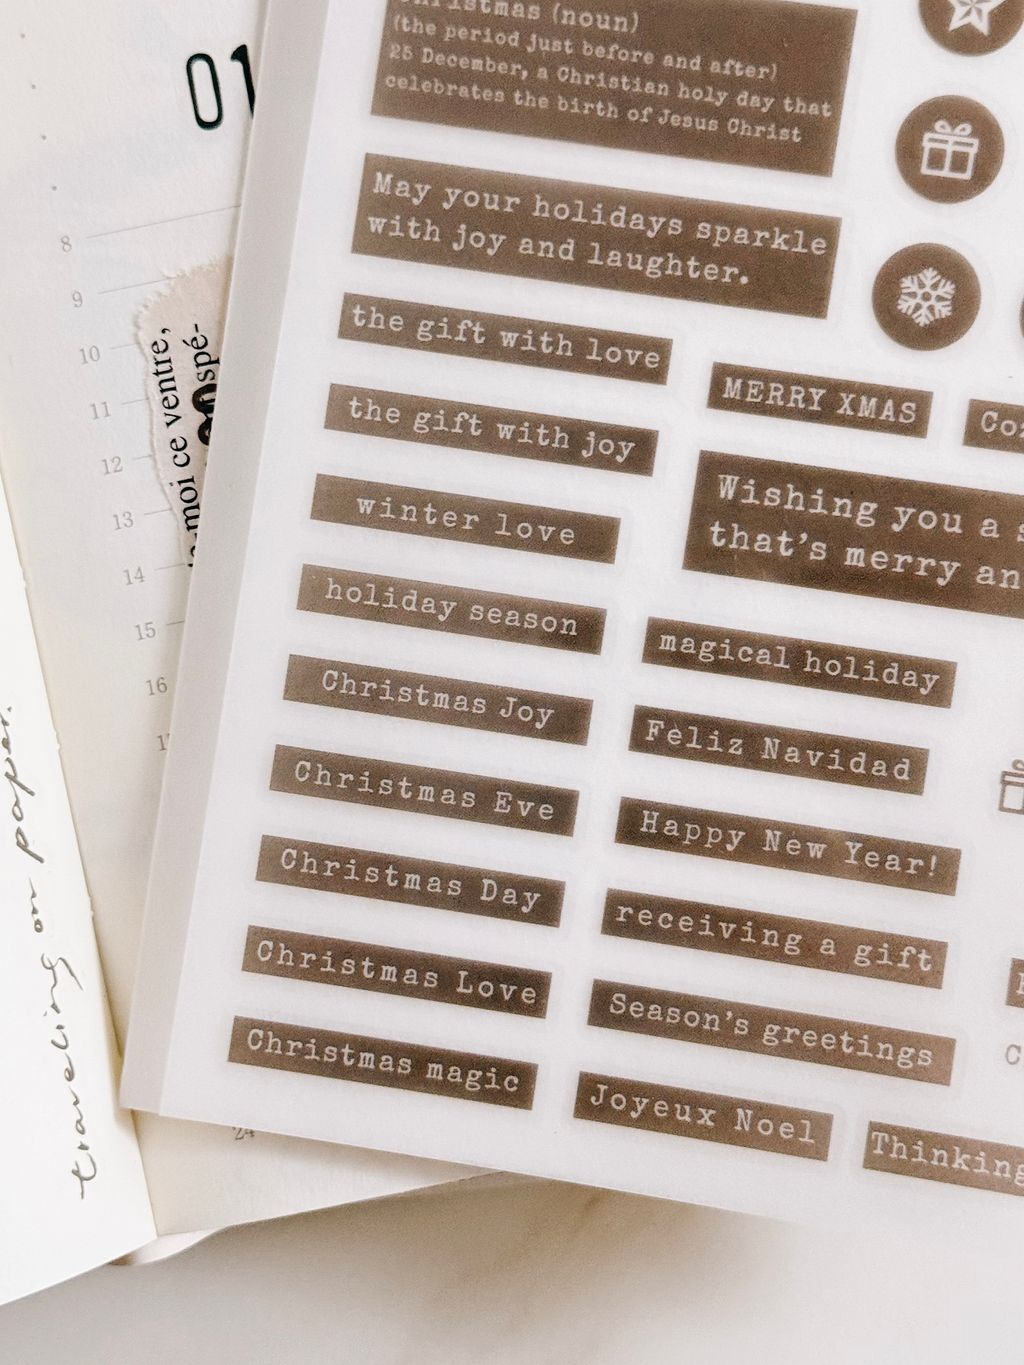 01
8
9
10
11
12
13
14
15
16
24
moi ce ventre,
spé-
traveling on paper.
Christmas (noun)
(the period just before and after)
25 December, a Christian holy day that
celebrates the birth of Jesus Christ
May your holidays sparkle
with joy and laughter.
the gift with love
the gift with joy
winter love
holiday season
Christmas Joy
Christmas Eve
Christmas Day
Christmas Love
Christmas magic
MERRY XMAS
Wishing you a
that's merry an
magical holiday
Feliz Navidad
Happy New Year!
receiving a gift
Season's greetings
Joyeux Noel
Thinking